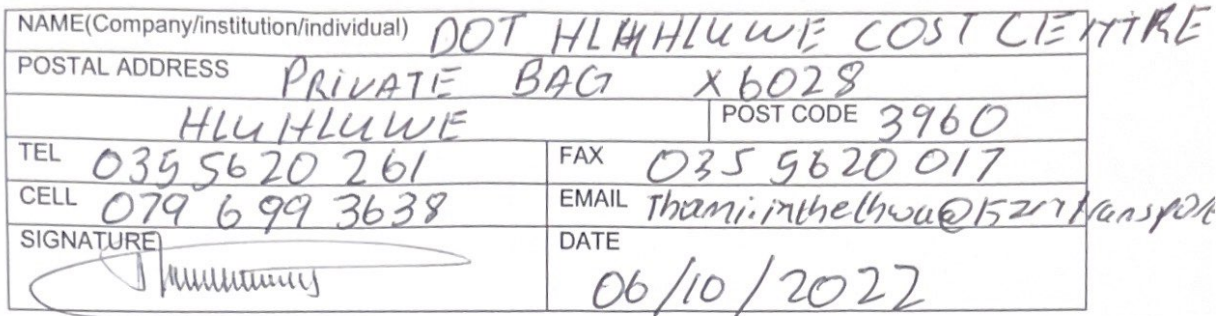 NAME(Company/institution/individual) DOT HLUHLUWE COST CENTRE
POSTAL ADDRESS PRIVATE BAG X6028
HLUHLUWE POST CODE 3960
TEL 035 5620 261 FAX 035 5620 017
CELL 079 699 3638 EMAIL
SIGNATURE DATE
06/10/2022